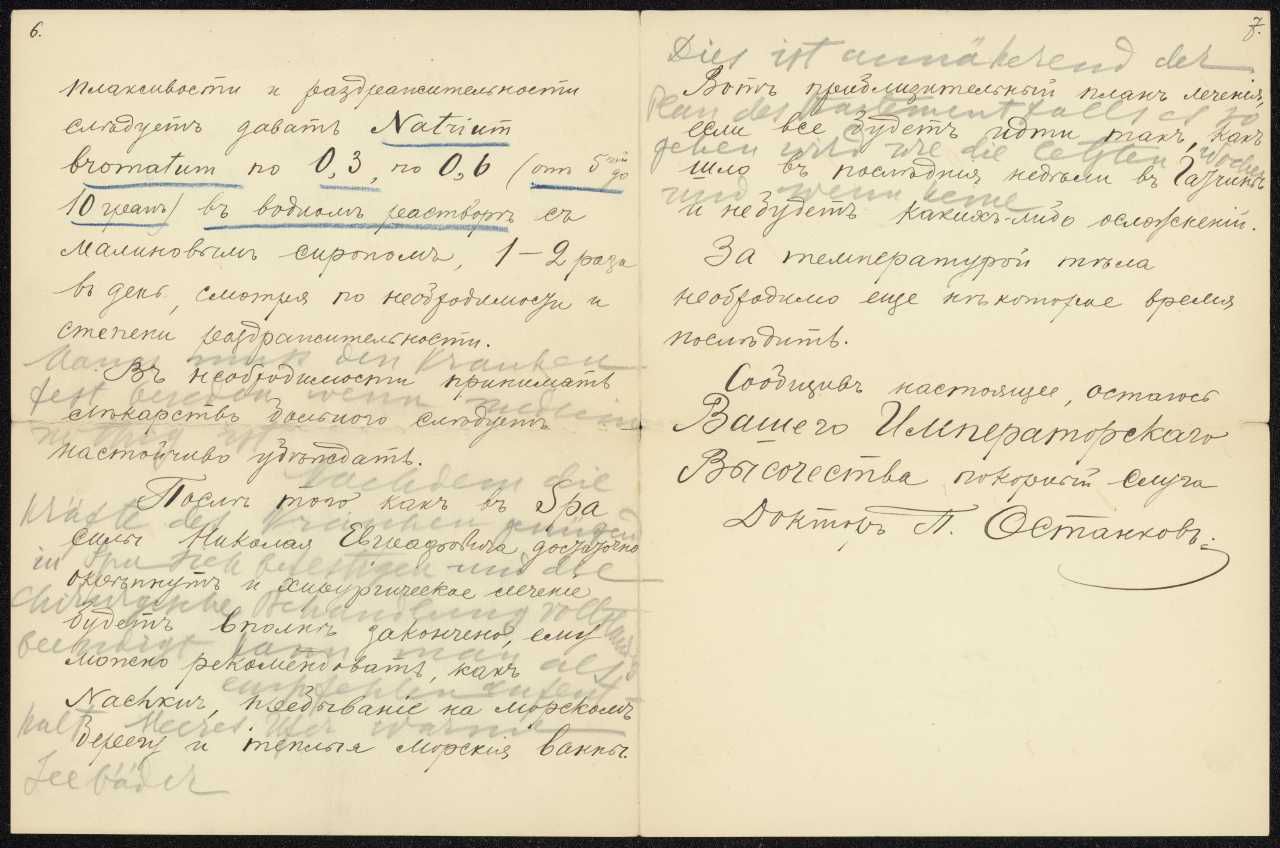 6.
плаксивости и раздражительности
слѣдуетъ давать Natrium
bromatum по 0,3, по 0,6 (отъ 5 ти до
10 гранъ) въ водномъ растворѣ съ
малиновымъ сиропомъ, 1–2 раза
въ день, смотря по необходимости и
степени раздражительности.
Man muss den Kranken
Въ необходимости принимать
fest bereden wenn Medicin
лѣкарство больного слѣдуетъ
nöthig ist
настойчиво убѣждать.
Nachdem die
Послѣ того какъ въ Spa
Kräfte des Kranken genügend
силы Николая Евграфовича достаточно
in Spa sich befestigen und die
окрѣпнутъ и хирургическое леченіе
chirurgische Behandlung vollständig
будетъ вполнѣ закончено, ему
beendigt kann man als
можно рекомендовать, какъ
empfehlen Aufent
Nachkur, пребываніе на морскомъ
halt Meeres Ufer warme
берегу и теплыя морскія ванны.
See bäder
7.
Dies ist annähernd der
Вотъ приблизительный планъ леченія,
Plan des falls es so
если все будетъ идти такъ, какъ
gehen wird wie die letzten Wochen
шло въ послѣднія недѣли въ Гатчинѣ
und wenn keine
и небудетъ какихъ-либо осложненій.
За температурой тѣла
необходимо еще нѣкоторое время
послѣдить.
Сообщивъ настоящее, остаюсь
Вашего Императорскаго
Высочества покорный слуга
Докторъ П. Останковъ.